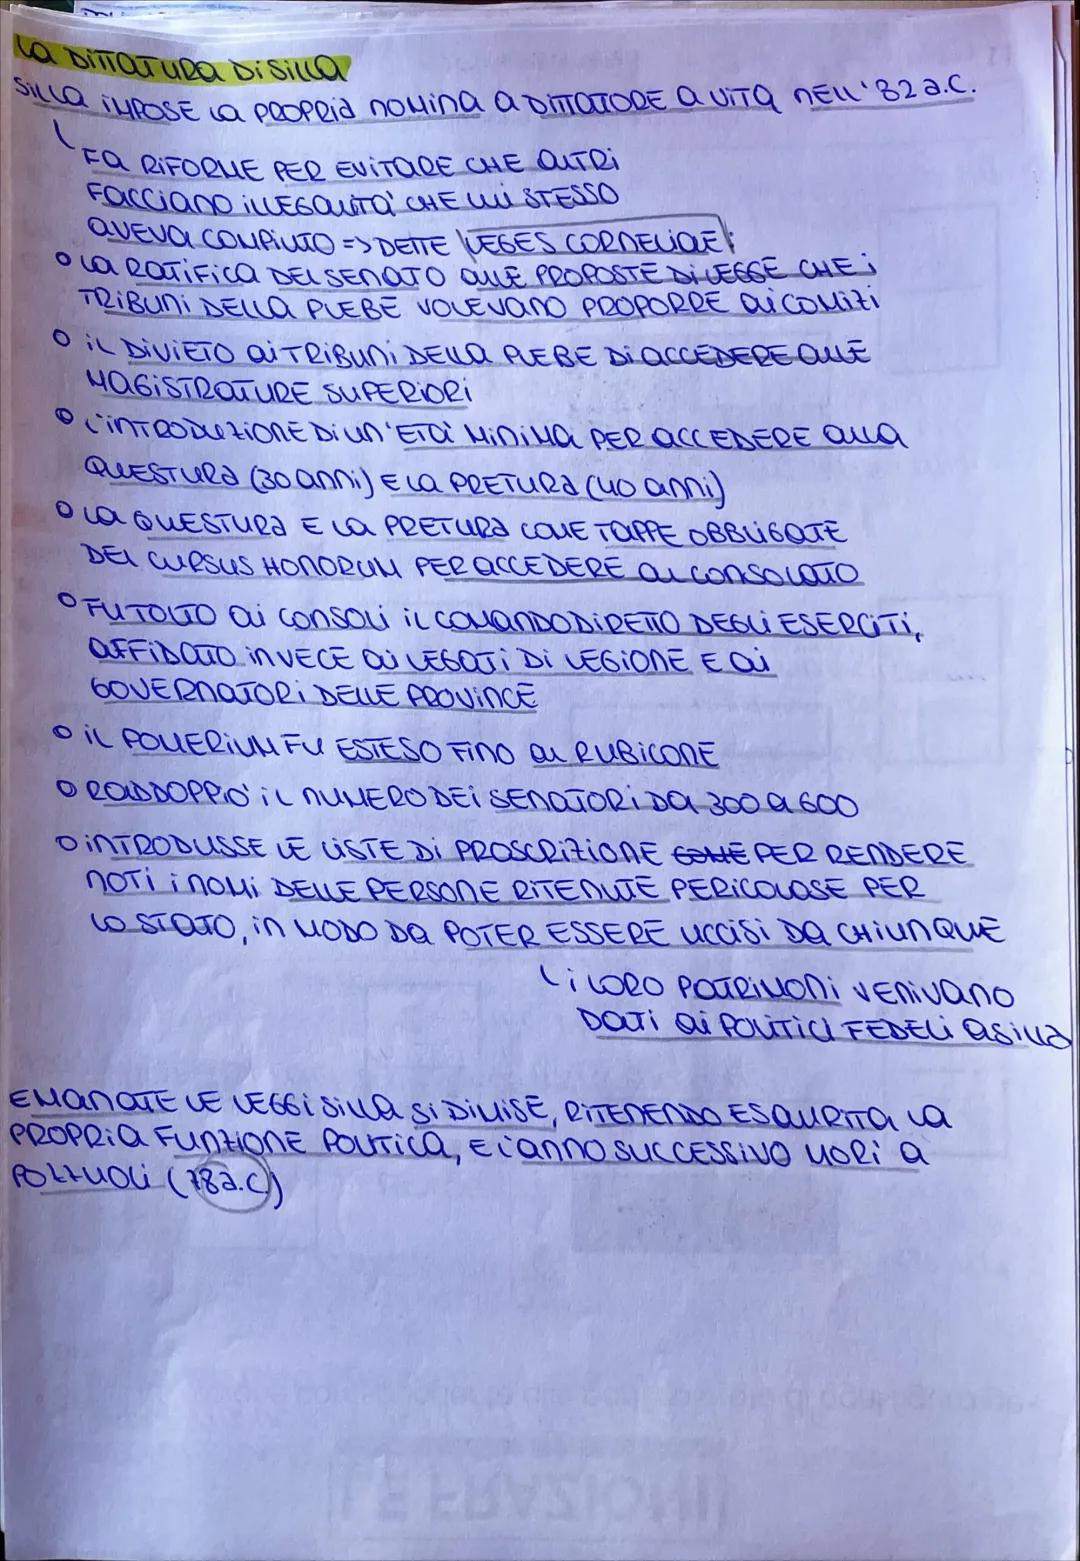 LA DITTATURA DI SILLA
SILLA IMPOSE LA PROPRIA NOMINA A DITTATORE A VITA NELL'82 a.C.
FA RIFORME PER EVITARE CHE ALTRI
FACCIANO ILLEGALITA' CHE LUI STESSO
AVEVA COMPIUTO => DETTE LEGES CORNELIAE:
○ LA RATIFICA DEL SENATO ALLE PROPOSTE DI LEGGE CHE I
TRIBUNI DELLA PLEBE VOLEVANO PROPORRE AI COMIZI
○ IL DIVIETO AI TRIBUNI DELLA PLEBE DI ACCEDERE ALLE
MAGISTRATURE SUPERIORI
○ L'INTRODUZIONE DI UN'ETA' MINIMA PER ACCEDERE ALLA
QUESTURA (30 ANNI) E LA PRETURA (40 ANNI)
○ LA QUESTURA E LA PRETURA COME TAPPE OBBLIGATE
DEL CURSUS HONORUM PER ACCEDERE AL CONSOLATO
○ FU TOLTO AI CONSOLI IL COMANDO DIRETTO DEGLI ESERCITI,
AFFIDATO INVECE AI LEGATI DI LEGIONE E AI
GOVERNATORI DELLE PROVINCE
○ IL POMERIUM FU ESTESO FINO AL RUBICONE
○ RADDOPPIO' IL NUMERO DEI SENATORI DA 300 A 600
○ INTRODUSSE LE LISTE DI PROSCRIZIONE COME PER RENDERE
NOTI I NOMI DELLE PERSONE RITENUTE PERICOLOSE PER
LO STATO, IN MODO DA POTER ESSERE UCCISI DA CHIUNQUE
I LORO PATRIMONI VENIVANO
DATI AI POLITICI FEDELI A SILLA
EMANATE LE LEGGI SILLA SI DIMISE, RITENENDO ESAURITA LA
PROPRIA FUNZIONE POLITICA, E L'ANNO SUCCESSIVO MORI A
POZZUOLI (78 a.C.)